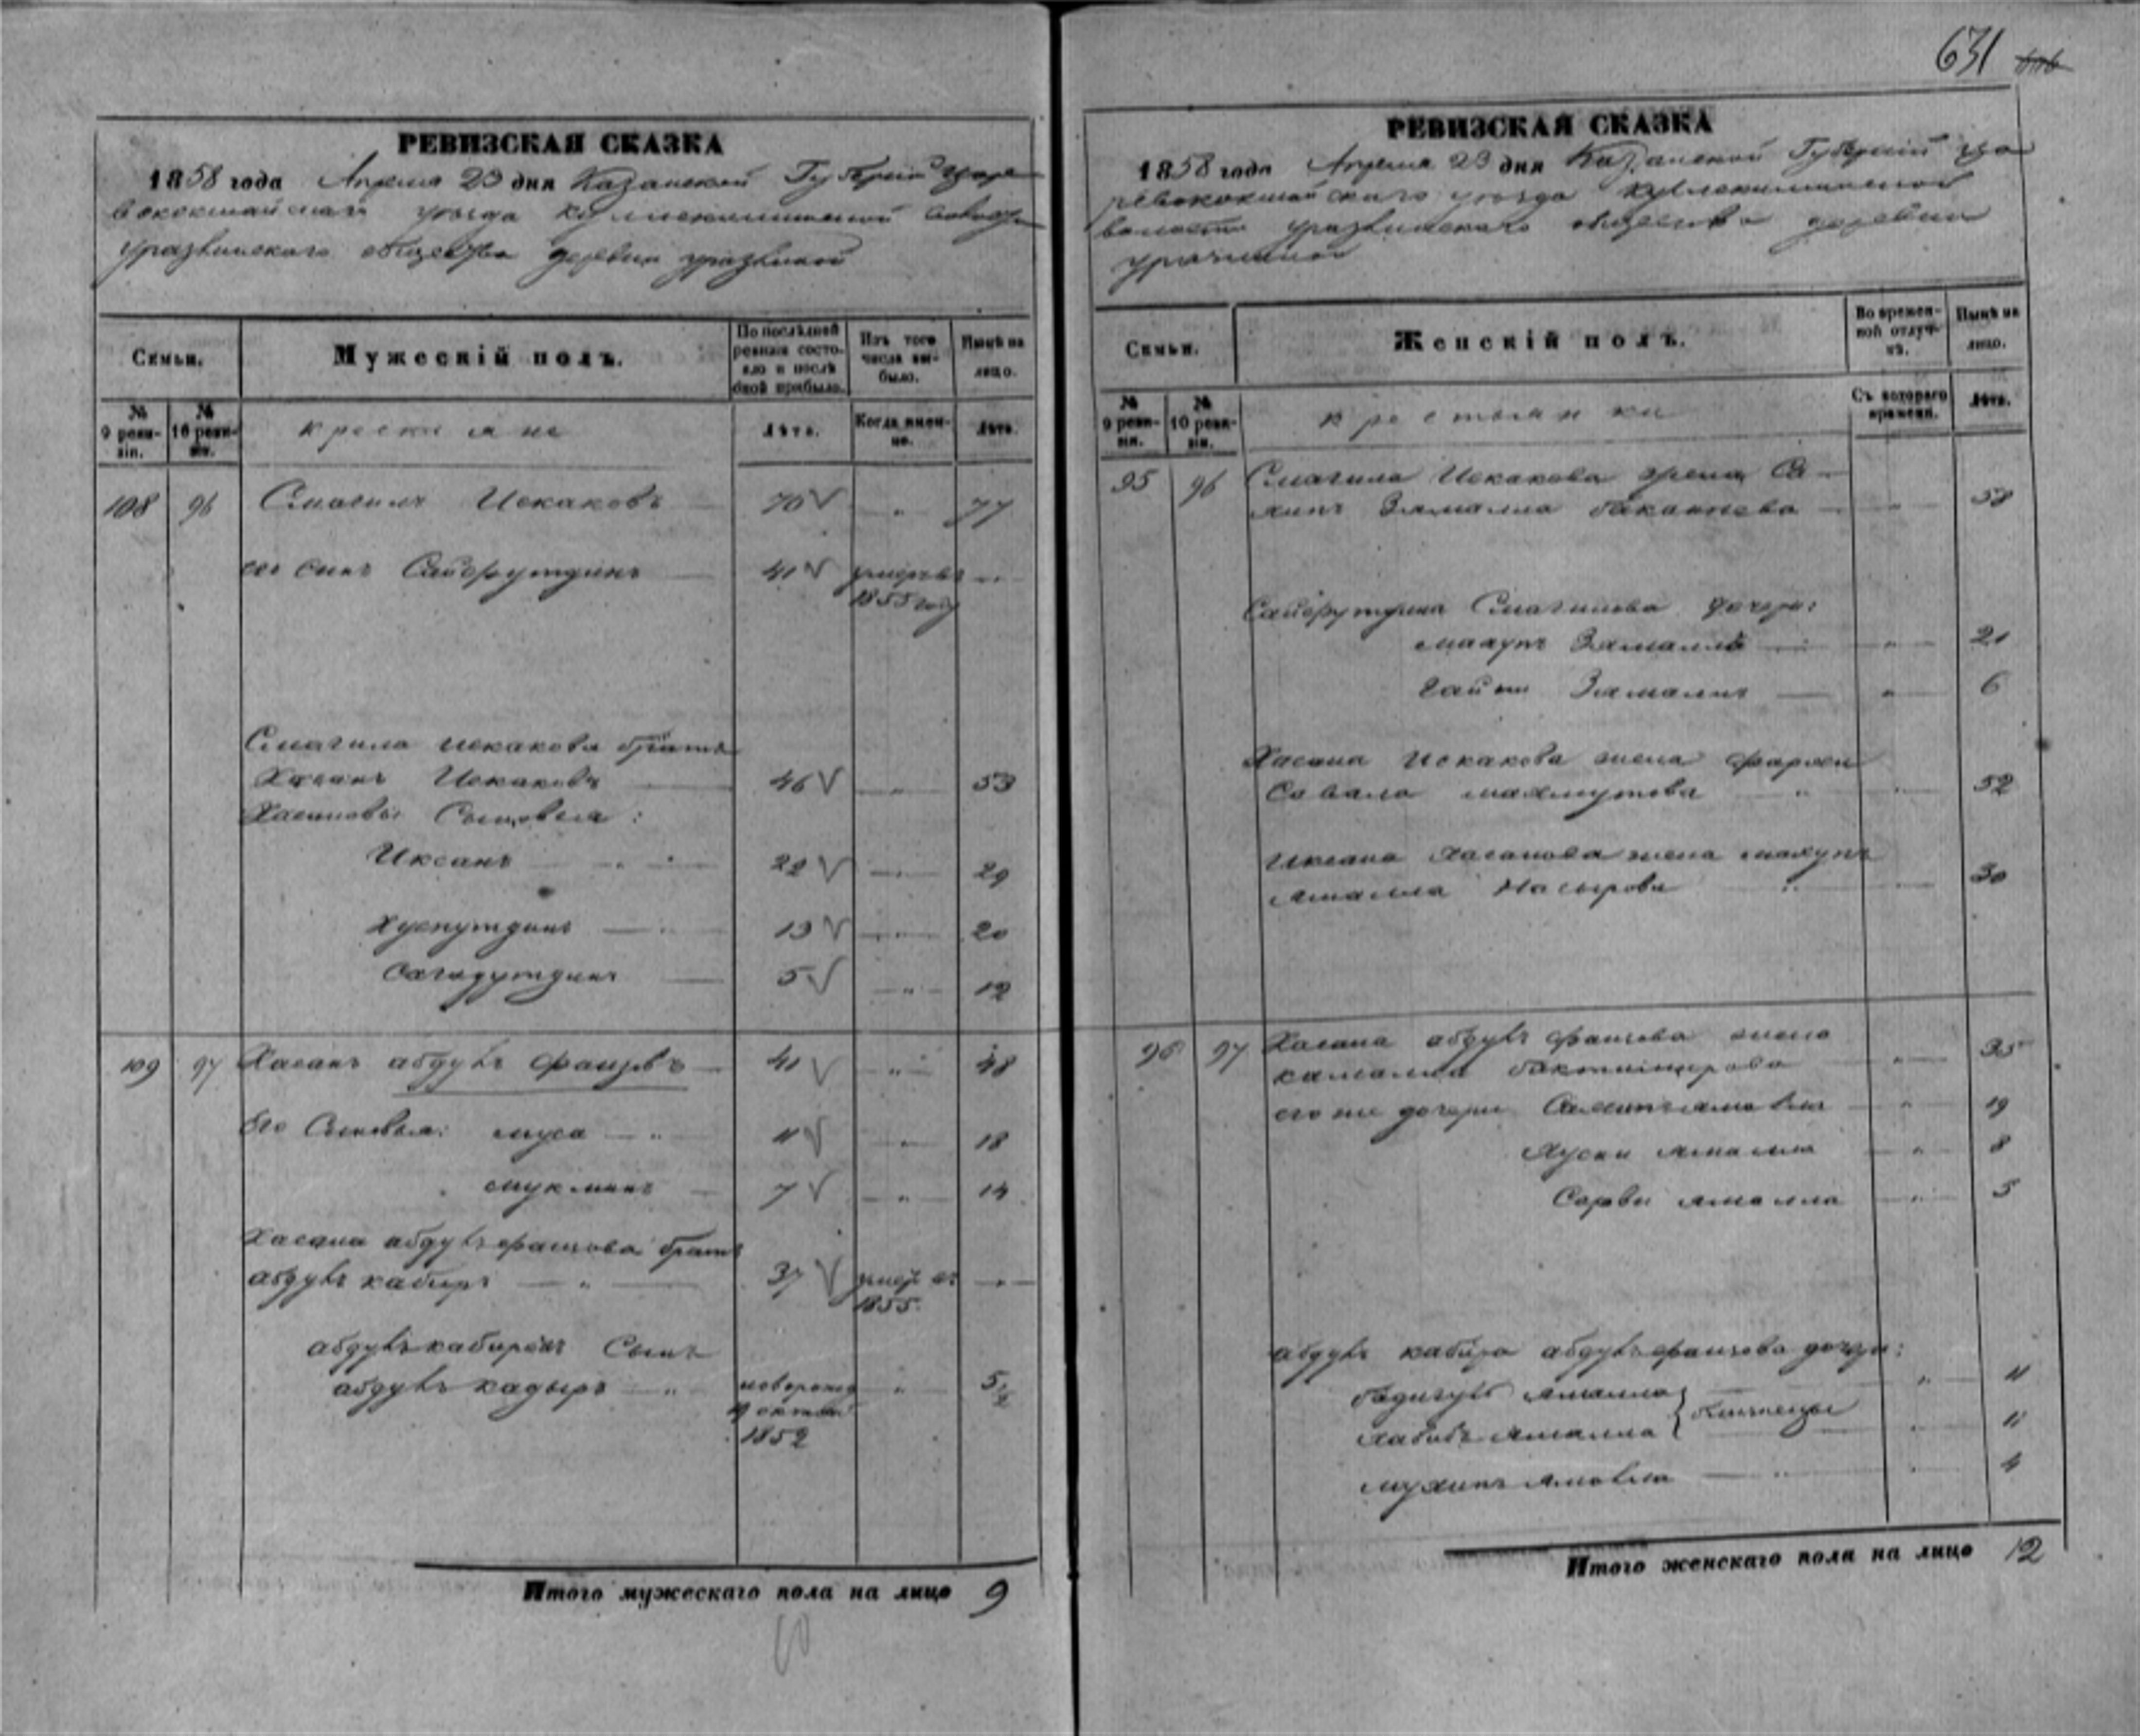 631
РЕВИЗСКАЯ СКАЗКА
1858 года Апреля 23 дня Казанской Губернiи Царе
вококшайскаго уѣзда волости
уразлинскаго общества деревни уразлиной
Семьи.
Мужескiй полъ.
По послѣдней ревизiи состояло и послѣ оной прибыло.
Изъ того числа выбыло.
Нынѣ на лицо.
№ 9 ревизiи.
№ 10 ревизiи.
крестьяне
Лѣта.
Когда именно.
Лѣта.
108 96 Смагилъ Искаковъ 70 " 77
его сынъ Сайфутдинъ 41 умеръ въ "
1855 году
Смагила Искакова братъ
Хасанъ Искаковъ 46 " 53
Хасановы Сыновья:
Иксанъ 22 " 29
Хуснутдинъ 13 " 20
Сагадутдинъ 5 " 12
109 97 Хасанъ абдулъ фаизовъ 41 " 48
Его Сыновья: муса 11 " 18
мукминъ 7 " 14
Хасана абдулъ фаизова братъ
абдулъ кабиръ 37 умер въ "
1855.
абдулъ кабировъ Сынъ
абдулъ кадыръ новорожд " 5½
октяб
1852
Итого мужескаго пола на лицо 9
РЕВИЗСКАЯ СКАЗКА
1858 года Апреля 23 дня Казанской Губернiи Ца
ревококшайскаго уѣзда
волости уразлинскаго общества деревни
Семьи.
Женскiй полъ.
Во временной отлучкѣ.
Нынѣ на лицо.
№ 9 ревизiи.
№ 10 ревизiи.
крестьянки
Съ котораго времени.
Лѣта.
95 96 Смагила Искакова жена Са
хипъ Зямалла " 58
Сайфутдина Смагилова дочери:
махупъ Зямалля " 21
Гайни Зямаличь " 6
Хасана Искакова жена
махмутова " 52
Иксана Хасанова жена махупъ
ямалла Насырова " 30
96 97 Хасана абдулъ фаизова жена
камалля " 35
его же дочери " 19
Хусни ямалла " 8
Сарви ямалла " 5
абдулъ кабира абдулъ фаизова дочери:
Бадигулъ ямалла } близнецы " 11
Хабибъ ямалла " 11
" 4
Итого женскаго пола на лицо 12